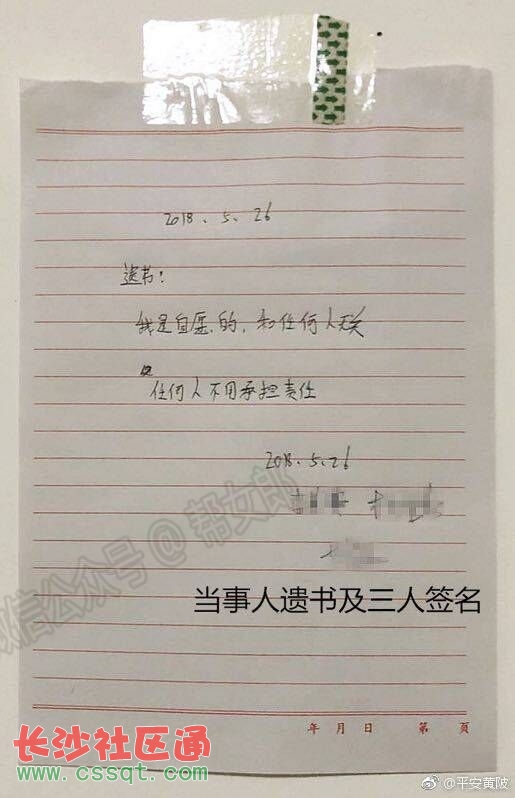 2018.5.26
遗书:
我是自愿的,和任何人无关
任何人不用承担责任
2018.5.26
微信公众号@帮女郎
当事人遗书及三人签名
年 月 日 第 页
长沙社区通
www.cssqt.com
@平安黄陂